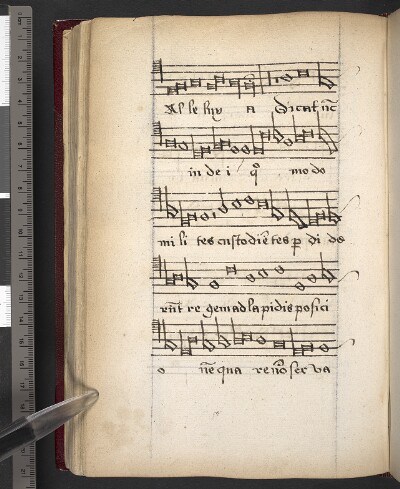 Al le luy a Dicāt nūc
iu de i qͦ mo do
mi li tes custodiētes ꝑ di de
rūt re gem ad lapidis posici
o nē qua re nō ser va